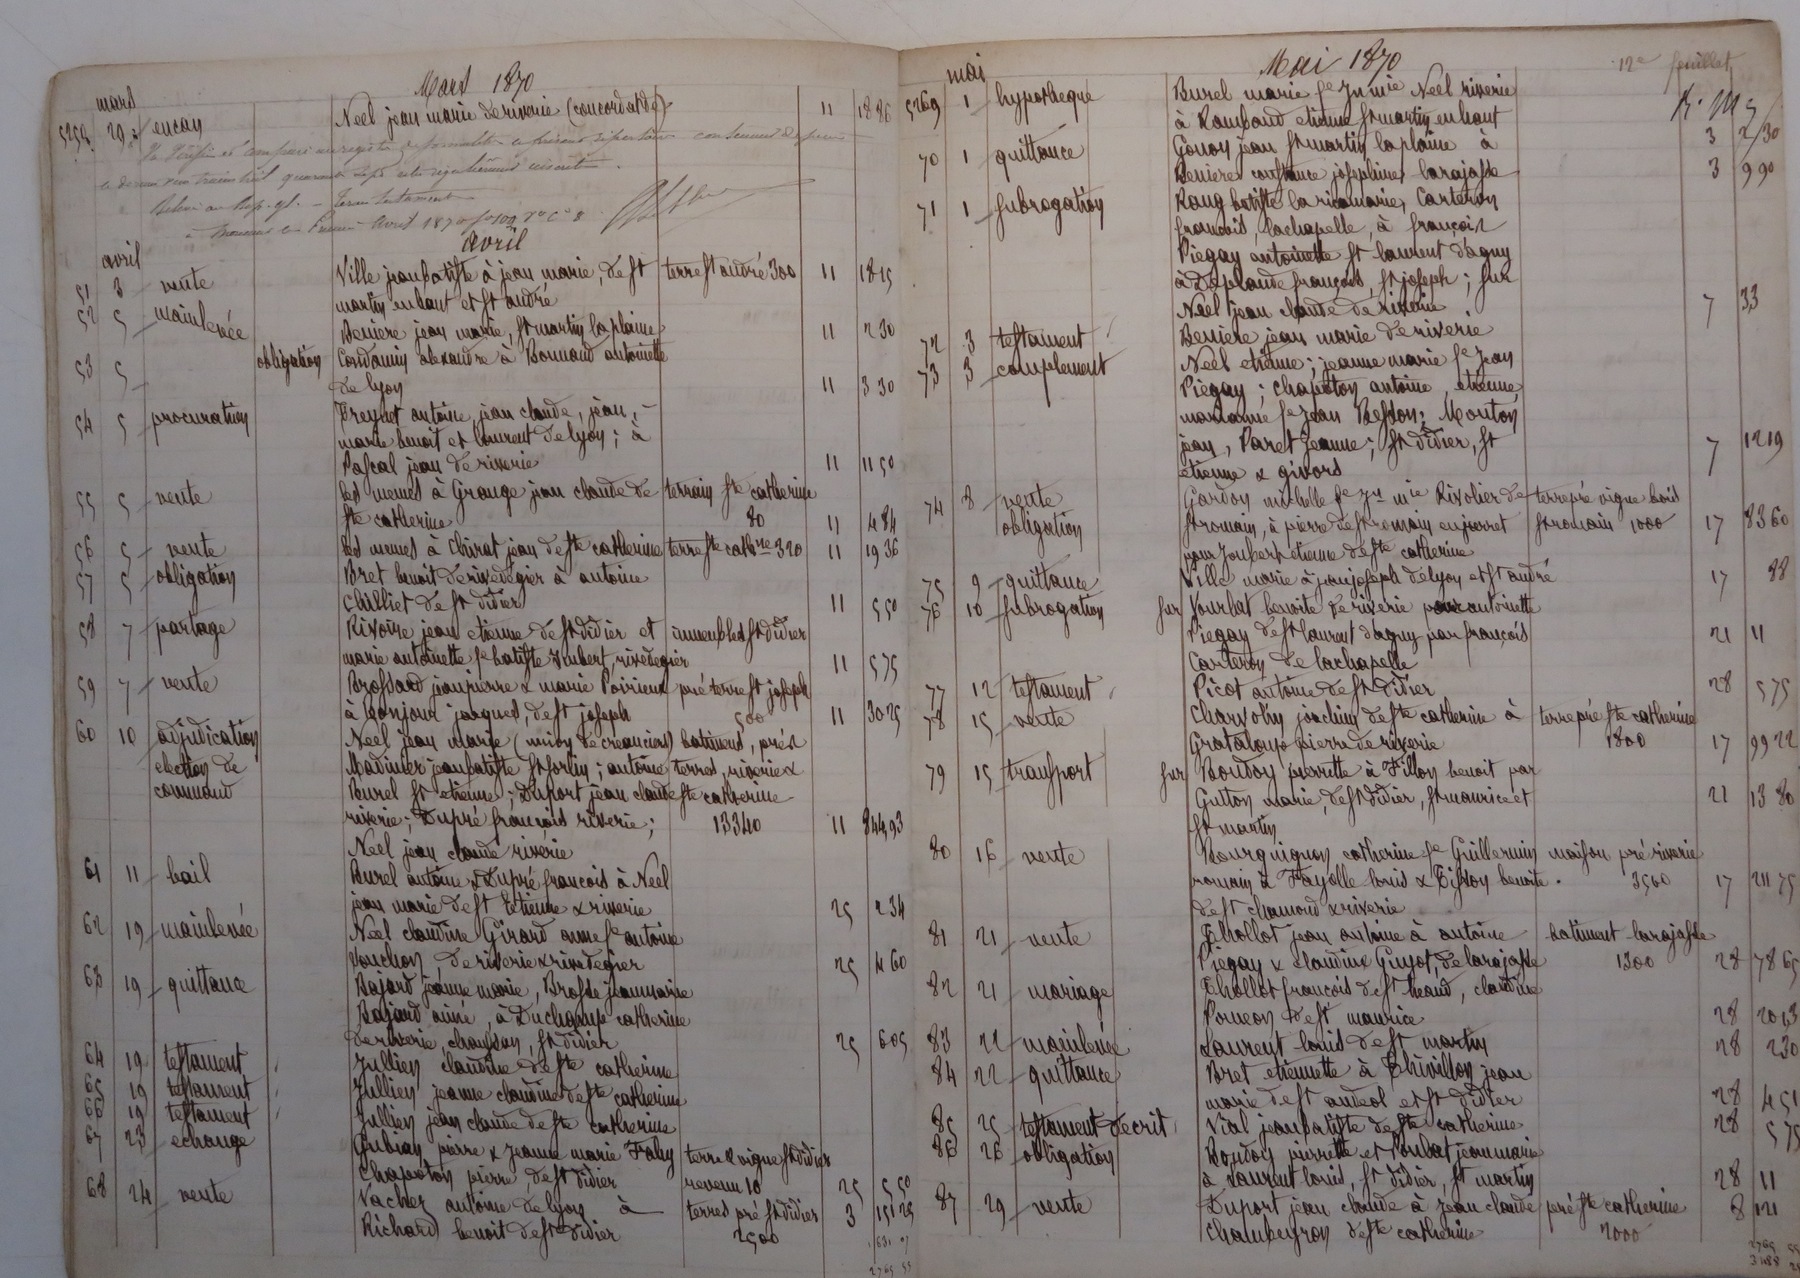 Mars 1870
mars
5250 29 encan Neel jean marie de riverie (concordat de) 11 18 86
à Mornant le Avril 1870 fo 109 Vo Co 8
avril
avril
51 3 vente Ville jean batiste à jean marie, de st terre st andré 300 11 18 15
martin en haut et st andré
52 5 mainlevée Beniere jean marie, st martin la plaine 11 2 30
53 5 obligation Condamin alexandre à Bonnand antoinette
de lyon 11 3 30
54 5 procuration Freynet antoine, jean claude, jean,
marie benoit et laurent de lyon ; à
Pascal jean de riverie 11 11 50
55 5 vente les memes à Grange jean claude de terrain ste catherine
ste catherine 80 11 4 84
56 5 vente les memes à Chirat jean de ste catherine terre ste cathne 320 11 19 36
57 5 obligation Bret benoit de rivedegier à antoine
Chilliet de st didier 11 5 50
58 7 partage Rivoire jean etienne de st didier et immeubles st didier
marie antoinette fe batiste Joubert, rivedegier 11 5 75
59 7 vente Brossard jean pierre & marie Poirieux pré terre st joseph
à bonjour jacques, de st joseph 500 11 30 25
60 10 adjudication Neel jean marie (union de creanciers) batiment, prés
election de Madinier jean batiste st sorlin ; antoine terres, riverie &
command Burel st etienne ; Duport jean claude ste catherine
riverie ; Dupré francois riverie ; 13340 11 844,93
Neel jean claude riverie
61 11 bail Burel antoine & Dupré francois à Neel
jean marie de st Etienne & riverie 25 2 34
62 19 mainlevée Neel claudine Girard anne fe antoine
Vouchon de riverie & rivedegier 25 4 60
63 19 quittance Bajard jeanne marie, Brosse jean marie
Bajard aimé, à Duchamp catherine
de riverie, chaussan, st didier 25 6 05
64 19 testament Jullien claudine de ste catherine
65 19 testament Jullien jeanne claudine de ste catherine
66 19 testament Jullien jean claude de ste catherine
67 23 echange Gubian pierre & jeanne marie Fahy terre & vigne st didier
Chapoton pierre, de st didier revenu 10 25 5 50
68 24 vente Vacher antoine de lyon à terres pré st didier 3 151 25
Richard benoit de st didier 2500
Mai 1870 12e feuillet
mai
5269 1 hypotheque Burel marie fe jn mie Neel riverie
à Rambaud etienne st martin en haut 3 2/30
70 1 quittance Gonon jean st martin la plaine à
Beniere constance josephine larajasse 3 9 90
71 1 subrogation Rang batiste la ricamarie, Carteron
francois, lachapelle, à françois
Piegay antoinette st laurent d'agny
à Desplaude françois, st joseph ; sur
Neel jean claude de riverie 7 33
72 3 testament Beniere jean marie de riverie
73 3 complement Neel etienne ; jeanne marie fe jean
Piegay ; chapoton antoine, etienne,
mariannie fe jean Besson ; Mouton
jean, Paret jeanne ; st didier, st
etienne & givors 7 12 19
74 8 vente Gardon michelle fe jn mie Rivolier de terre pré vigne bois
obligation st romain, à pierre de st romain en jarret st romain 1000 17 83 60
pour Joubert etienne de ste catherine
75 9 quittance Ville marie à jean joseph de lyon et st andré 17 88
76 10 subrogation sur Jourbat benoite de riverie pour antoinette
Piegay de st laurent d'agny par françois 21 11
Carteron de lachapelle
77 12 testament Picot antoine de st didier 28 5 75
78 15 vente Charvolin joachim de ste catherine à terre pré ste catherine
Grataloup pierre de riverie 1800 17 99 22
79 15 transport sur Boudoy pierrette à Fillon benoit par
Guiton marie, de st didier, st maurice et 21 13 80
st martin
80 16 vente Bourguignon catherine fe Guillermin maison pré riverie
romain à Fayolle louis & Tisson benoite 3560 17 211 75
de st chamond & riverie
81 21 vente Thollot jean antoine à antoine batiment larajasse
Piegay & claudine Guyot, de larajasse 1300 28 78 65
82 21 mariage Thollot francois de st heand, claudine
Ponceon de st maurice 28 20,13
83 22 mainlevée Laurent louis de st martin 28 2 30
84 22 quittance Bret etiennette à Thivillon jean
marie de st andeol et st didier 28 4 51
85 25 testament decrit Vial jean batiste de ste catherine 28 5 75
86 26 obligation Boudoy pierrette et Poulat jean marie
à Laurent louis, st didier, st martin 28 11
87 29 vente Duport jean claude à jean claude pré ste catherine 8 121
Chambeyron de ste catherine 2000